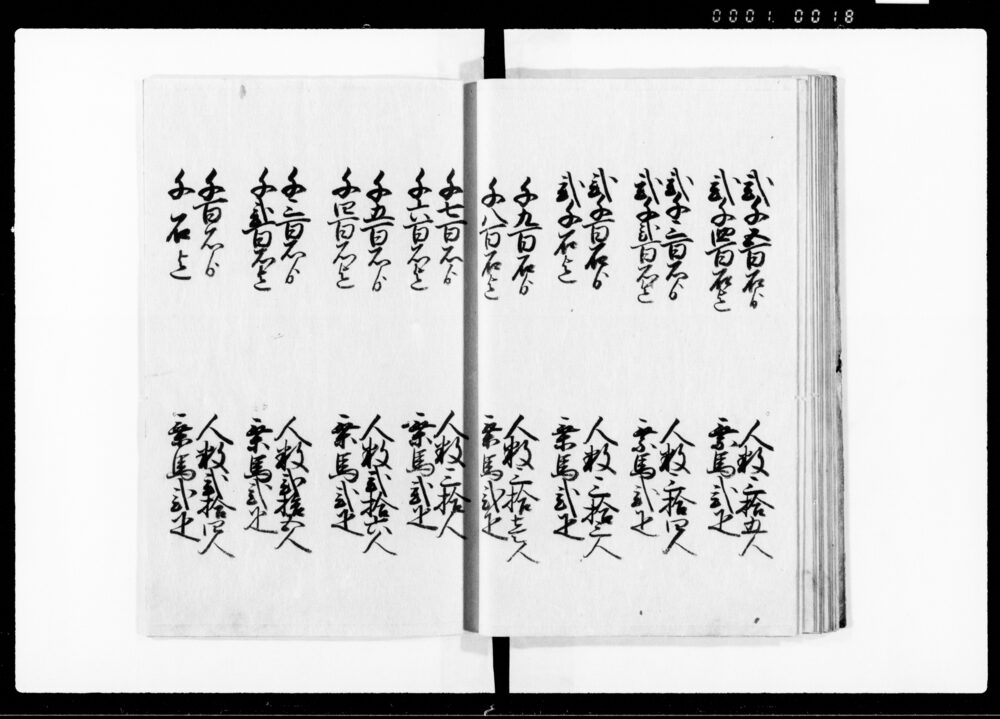 0001. 0018
弐千五百石ゟ
弐千四百石迄
人数三拾五人
乗馬弐疋
弐千三百石ゟ
弐千弐百石迄
人数三拾四人
乗馬弐疋
弐千百石ゟ
弐千石迄
人数三拾三人
乗馬弐疋
千九百石ゟ
千八百石迄
人数三拾壱人
乗馬弐疋
千七百石ゟ
千六百石迄
人数三拾人
乗馬弐疋
千五百石ゟ
千四百石迄
人数弐拾六人
乗馬弐疋
千三百石ゟ
千弐百石迄
人数弐拾五人
乗馬弐疋
千百石ゟ
千石迄
人数弐拾四人
乗馬弐疋